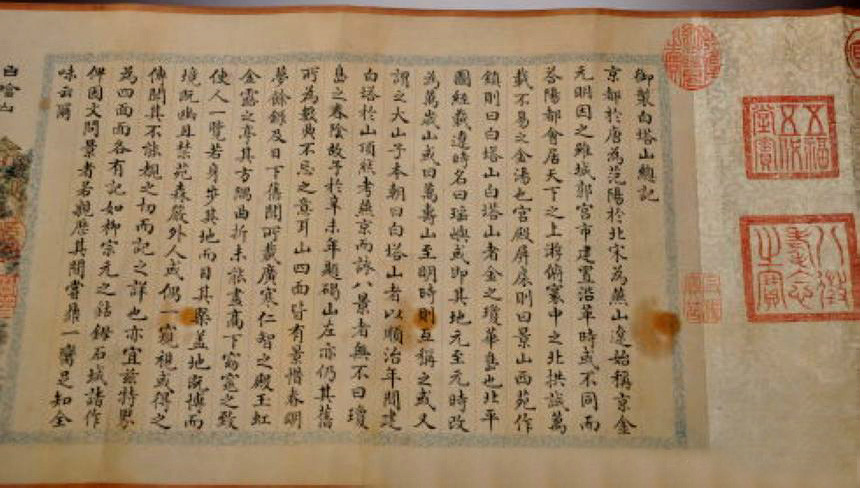 五福五代堂寶
八徵耄念之寶
御製白塔山總記
京都於唐為范陽於北宋為燕山遼始稱京金
元明因之雖城郭宮市建置沿革時或不同而
答陽都會居天下之上游俯寰中之北拱誠萬
載不易之金湯也宮殿屏扆則曰景山西苑作
鎮則曰白塔山白塔山者金之瓊華島也北平
圖經載遼時名曰瑶嶼或即其地元至元時改
為萬歲山或曰萬壽山至明時則互稱之或又
謂之大山子本朝曰白塔山者以順治年間建
白塔於山頂然考燕京而詠八景者無不曰瓊
島之春陰故予於辛未年題碣山左亦仍其舊
所為數典不忘之意耳山四面皆有景惜春明
夢餘錄及日下舊聞所載廣寒仁智之殿玉虹
金露之亭其方隅曲折未能盡高下窈窕之致
使人一覽若身步其地而目其槩蓋地既博而
境既幽且禁苑森嚴外人或偶一窺視或得之
傳聞其不能覩之切而記之詳也亦宜兹特界
為四面面各有記如柳宗元之鈷鉧石城諸作
俾因文問景者若親歷其間嘗鼎一臠足知全
味云爾